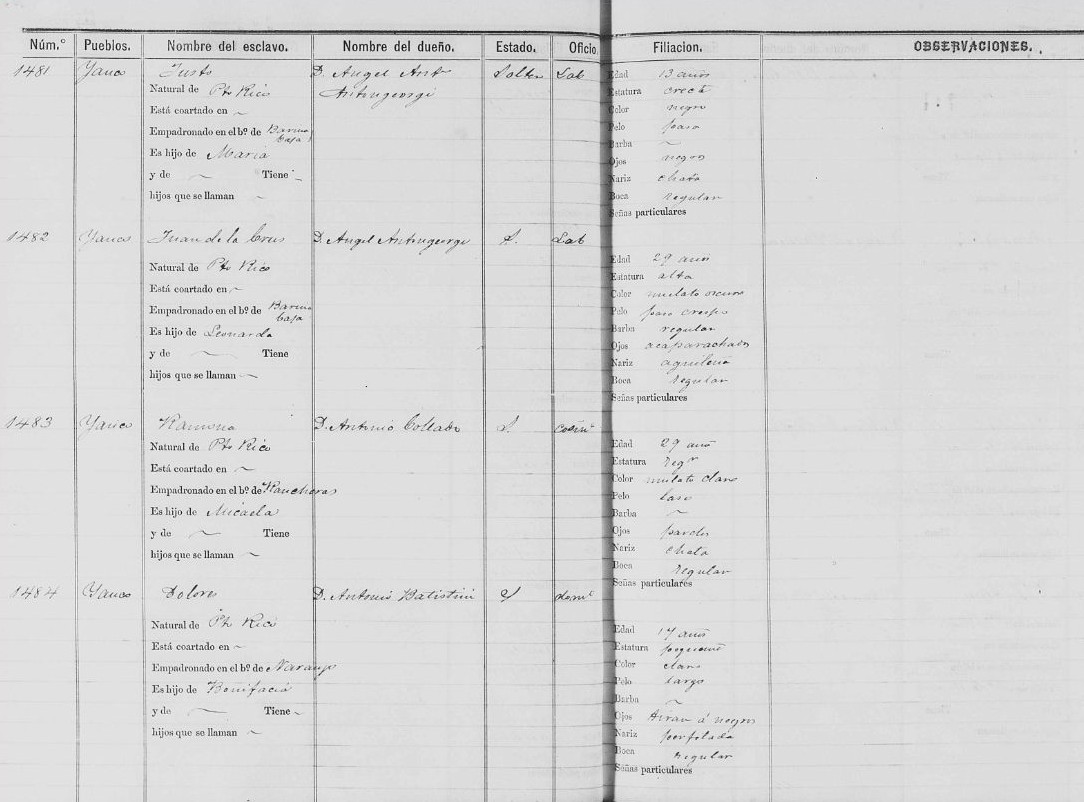 Núm.º Pueblos. Nombre del esclavo. Nombre del dueño. Estado. Oficio. Filiacion. OBSERVACIONES.
1481 Yauco Justo D. Angel Antº Soltero Lab
Antongeorgi
Natural de Pto Rico
Está coartado en ~
Empadronado en el bº de Barina
baja
Es hijo de Maria
y de ~ Tiene ~
hijos que se llaman ~
Edad 13 años
Estatura creca
Color negro
Pelo pasa
Barba ~
Ojos negros
Nariz chata
Boca regular
Señas particulares
1482 Yauco Juan de la Crus D. Angel Antongeorgi S. Lab
Natural de Pto Rico
Está coartado en ~
Empadronado en el bº de Barina
baja
Es hijo de Leonarda
y de ~ Tiene
hijos que se llaman ~
Edad 29 años
Estatura alta
Color mulato oscuro
Pelo pasa crespo
Barba regular
Ojos acaparachados
Nariz aguileña
Boca regular
Señas particulares
1483 Yauco Ramona D. Antonio Collado S. cosinª
Natural de Pto Rico
Está coartado en ~
Empadronado en el bº de Rancheras
Es hijo de Micaela
y de ~ Tiene
hijos que se llaman ~
Edad 29 años
Estatura regr
Color mulato claro
Pelo laso
Barba ~
Ojos pardos
Nariz chata
Boca regular
Señas particulares
1484 Yauco Dolores D. Antonio Batistini S domª
Natural de Pto Rico
Está coartado en ~
Empadronado en el bº de Naranjo
Es hijo de Bonifacia
y de ~ Tiene ~
hijos que se llaman ~
Edad 17 años
Estatura pequeña
Color claro
Pelo largo
Barba ~
Ojos tiran á negros
Nariz perfilada
Boca regular
Señas particulares